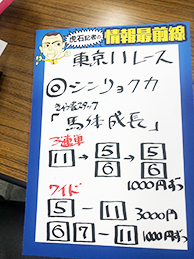 虎石記者の
情報最前線
東京11レース
◎シンリョクカ
「馬体成長」
3連単
11→5 6→5 6
1000円ずつ
ワイド
5-11 3000円
6 7-11 1000円ずつ